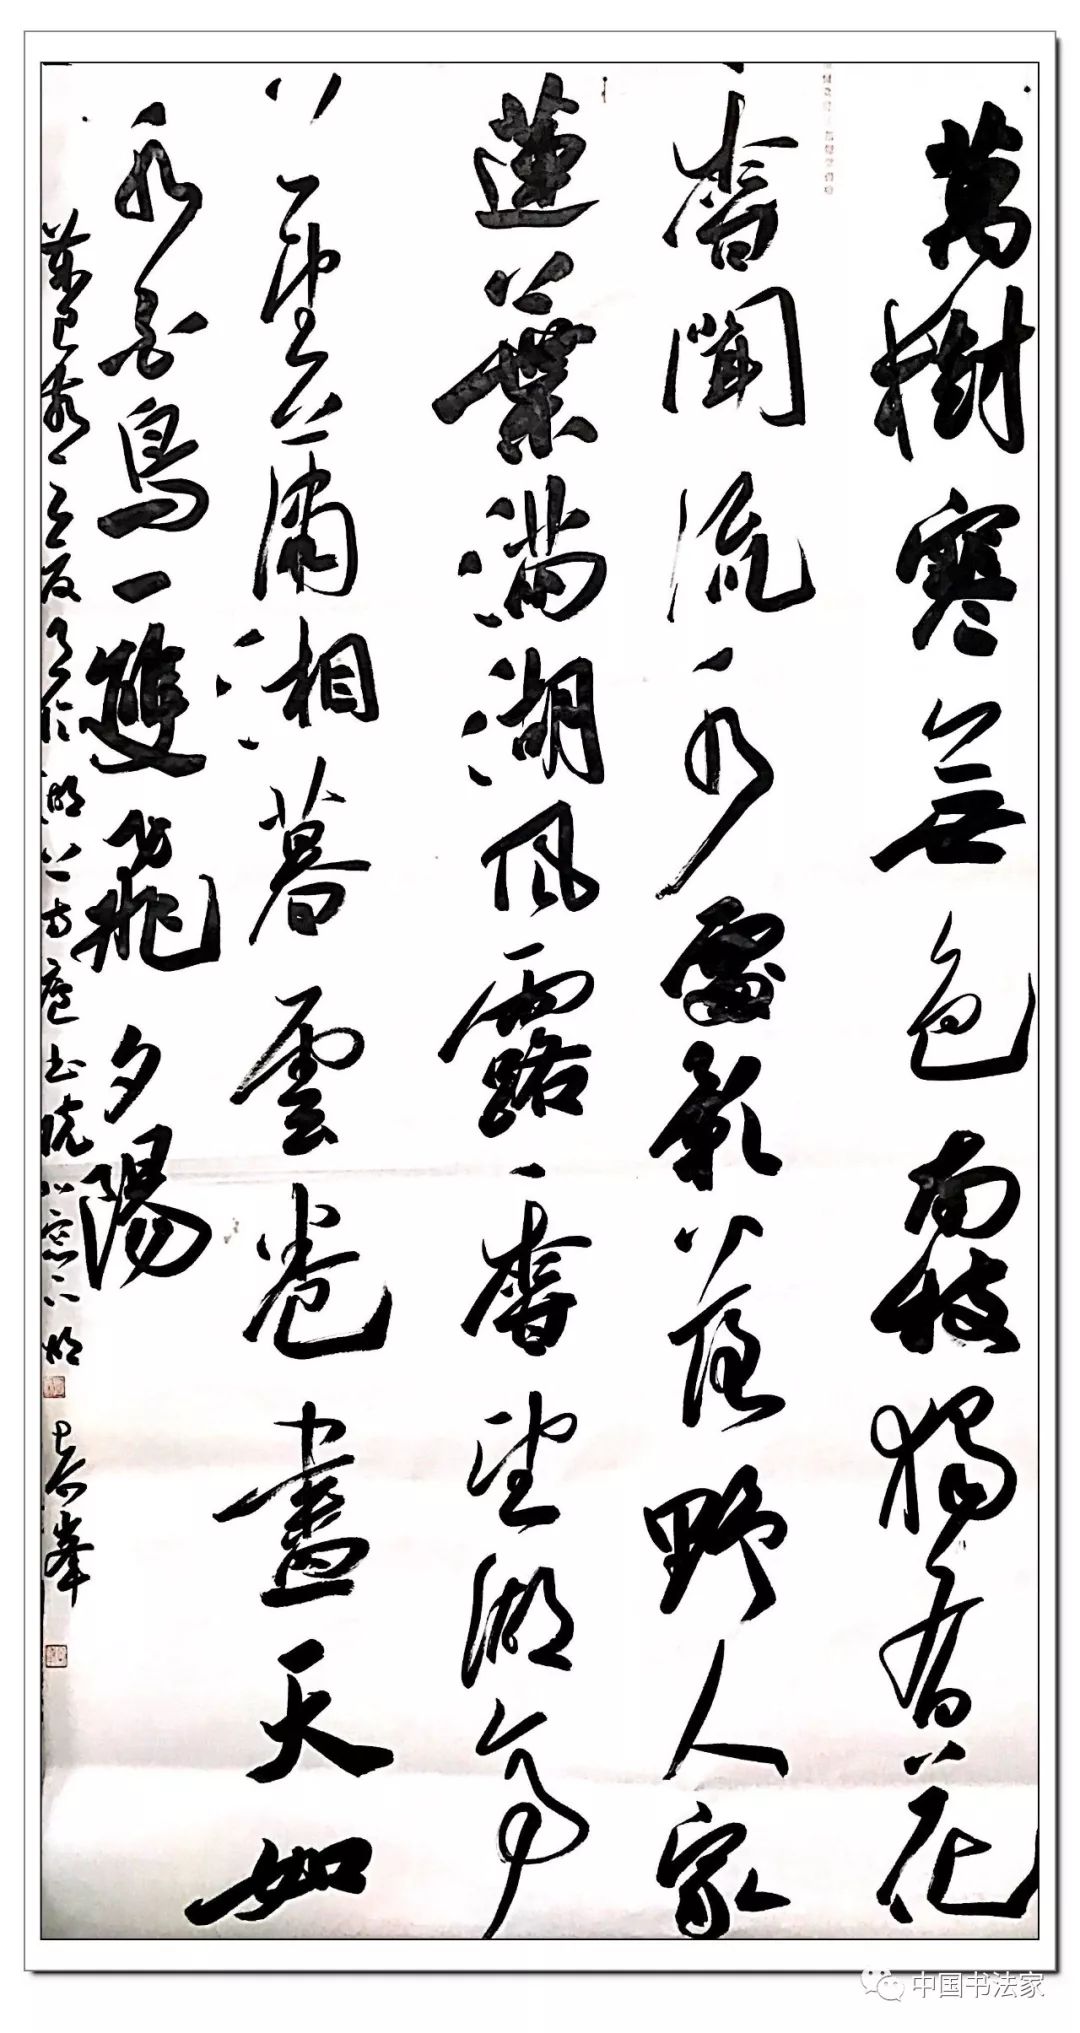 萬樹寒無色南枝獨有花
香聞流水處影落野人家
蓮葉滿湖風露香望湖亭
上望瀟湘暮雲卷盡天如
水白鳥一雙飛夕陽
中国书法家